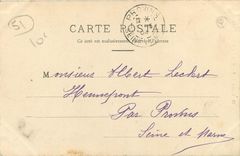 51
CARTE POSTALE
Ce côté est exclusivement réservé à l'adresse
Monsieur Albert Leclert
Hennepont
Par Provins
Seine et Marne